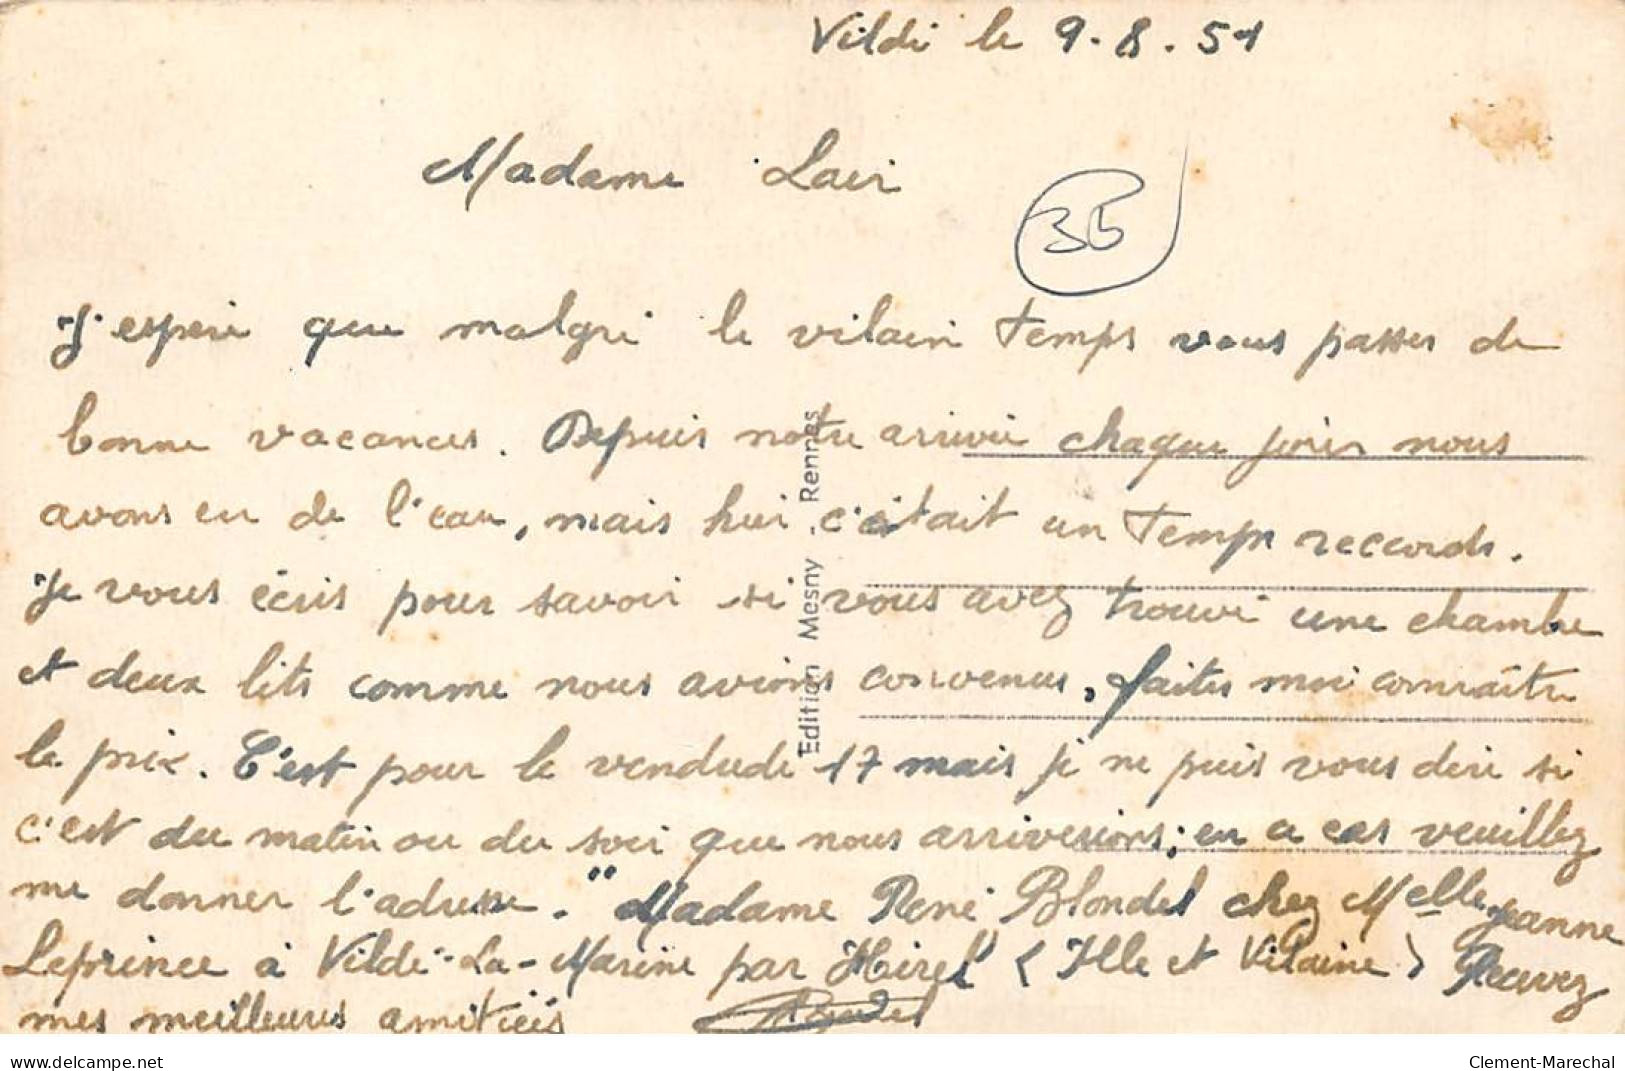 Vildé le 9.8.51
Madame Lair
35
J'espère que malgré le vilain temps vous passer de
bonne vacances. Depuis notre arrivée chaque jour nous
avons eu de l'eau, mais hier c'était un temps reccords.
Je vous écris pour savoir si vous avez trouvé une chambre
et deux lits comme nous avions convenus, faites moi connaître
le prix. C'est pour le vendredi 17 mais je ne puis vous dire si
c'est du matin ou du soir que nous arriverions; en a cas veuillez
me donner l'adresse. "Madame René Blondel chez Melle Jeanne
Leprince à Vildé-La-Marine par Hirel" (Ille et Vilaine) Recevez
mes meilleures amitiées
Blondel
Edition Mesny - Rennes
www.delcampe.net
Clement-Marechal